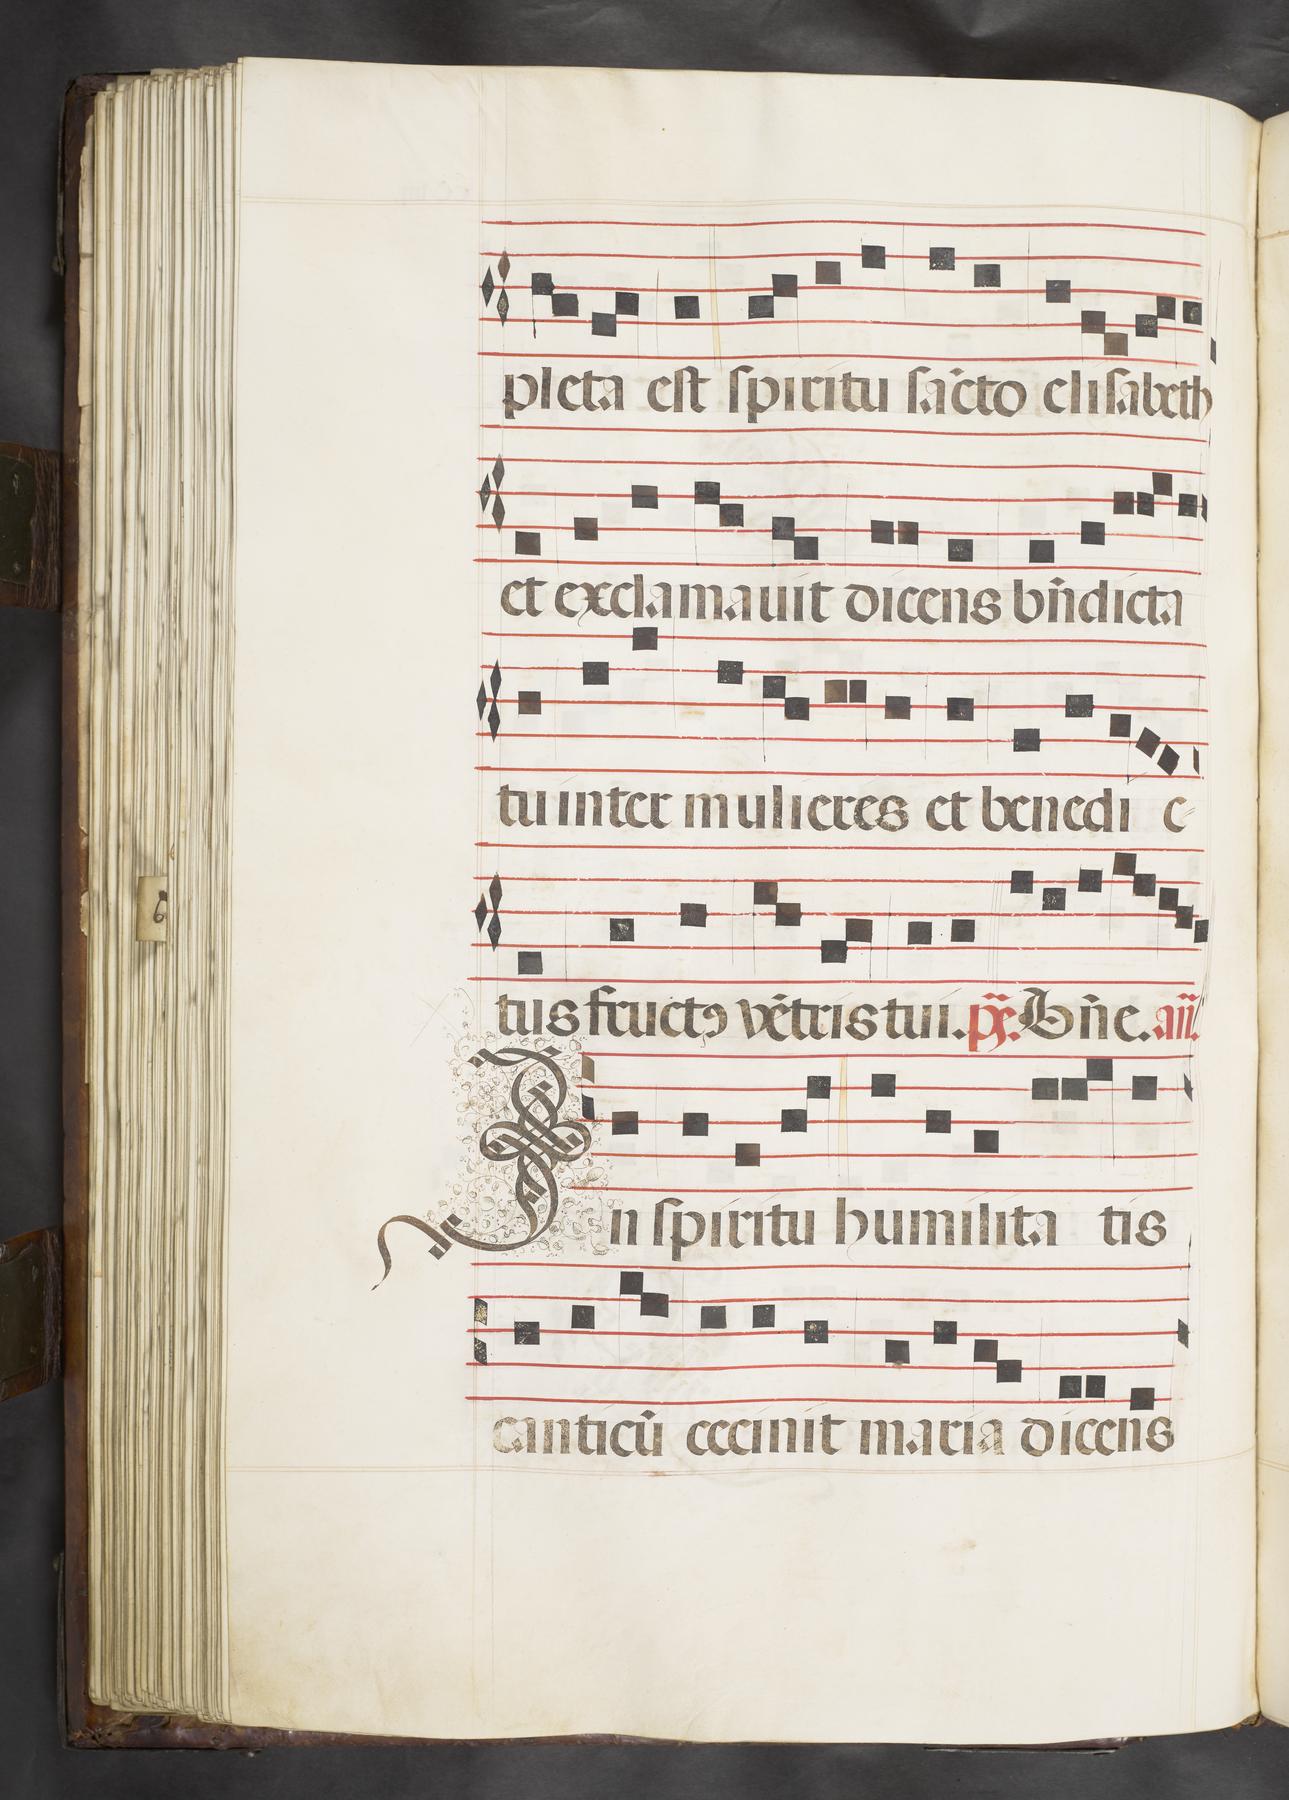 pleta est spiritu sãcto elisabeth
et exclamauit dicens bñdicta
tu inter mulieres et benedi c-
tus fructꝰ vẽtris tui. ps. Bñe. añ.
In spiritu humilita tis
canticũ cecinit maria dicens